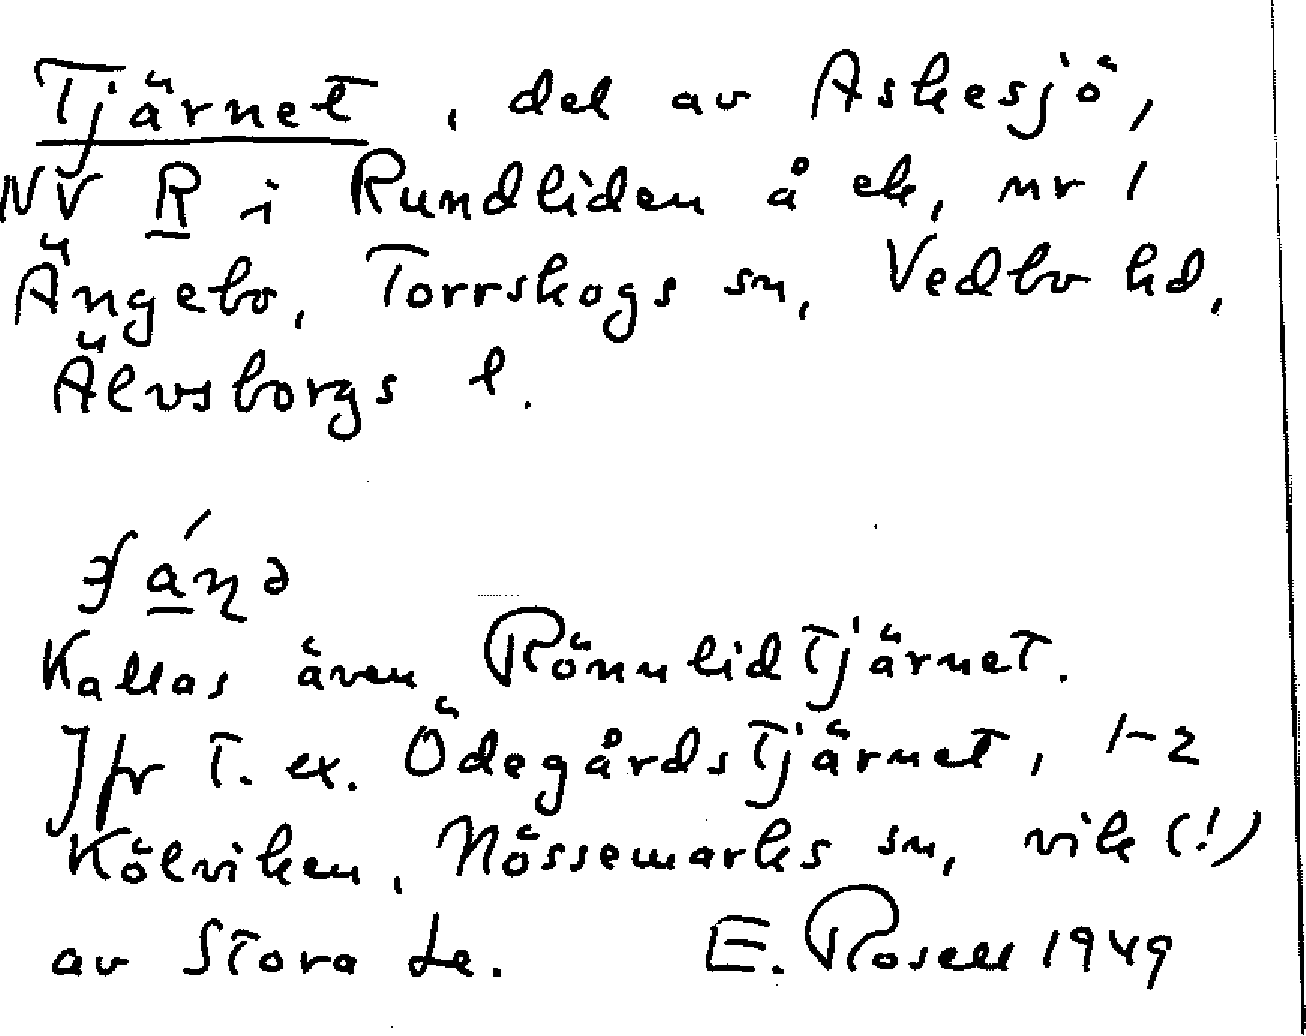 Tjärnet, del av Askesjö,
NV R i Rundliden å ek, nr 1
Ängebo, Torrskogs sn, Vedbo hd,
Älvsborgs l.
Kallas även Rönnlidtjärnet.
Jfr t. ex. Ödegårdstjärnet, 1-2
Kölviken, Nössemarks sn, vik (!)
av Stora Le. E. Rosell 1949